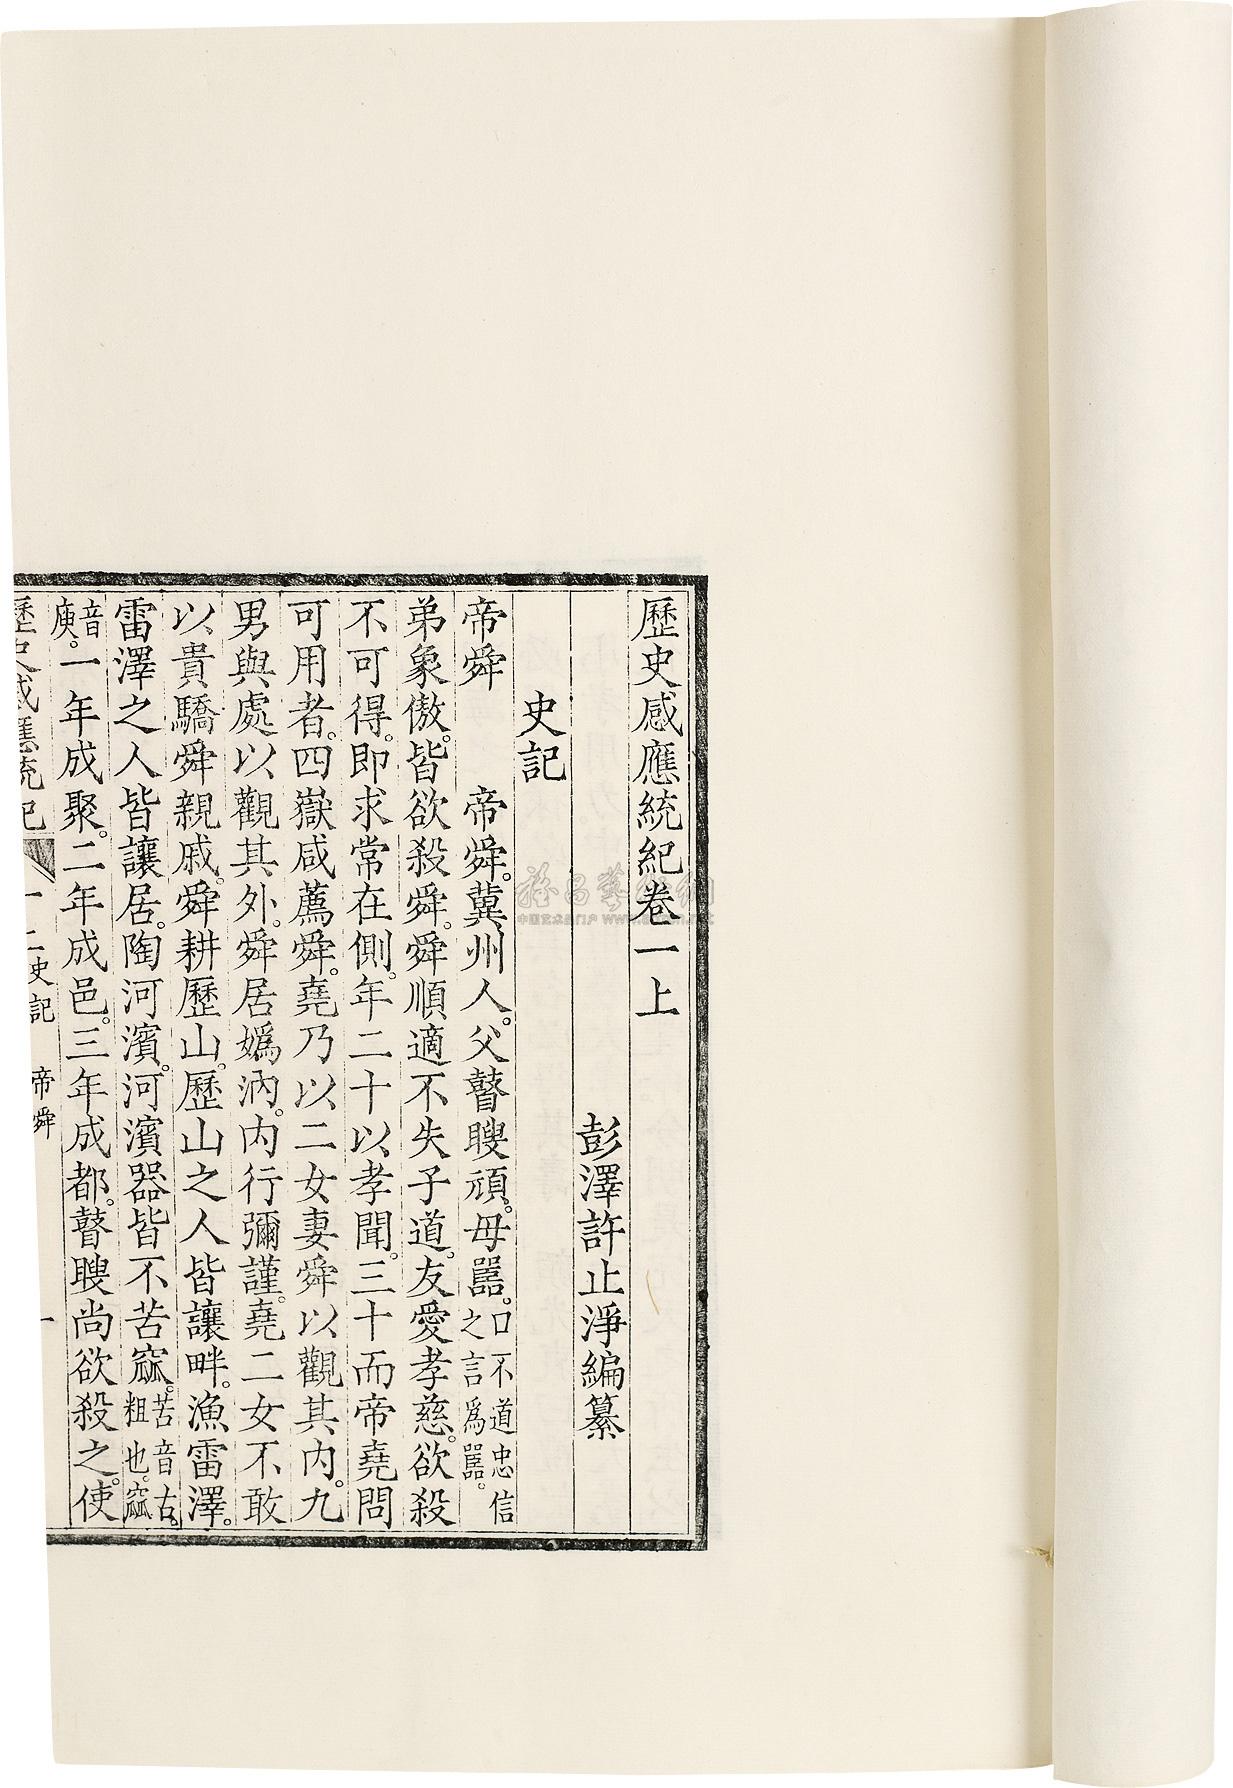 歷史感應統紀卷一上
彭澤許止淨編纂
史記
帝舜　帝舜。冀州人。父瞽瞍頑。母嚚。口不道忠信之言爲嚚。
弟象傲。皆欲殺舜。舜順適不失子道。友愛孝慈。欲殺
不可得。即求常在側。年二十以孝聞。三十而帝堯問
可用者。四嶽咸薦舜。堯乃以二女妻舜以觀其內。九
男與處以觀其外。舜居嬀汭。內行彌謹。堯二女不敢
以貴驕舜親戚。舜耕歷山。歷山之人皆讓畔。漁雷澤。
雷澤之人皆讓居。陶河濱。河濱器皆不苦窳。苦音古。粗也。窳
音庾。一年成聚。二年成邑。三年成都。瞽瞍尚欲殺之。使
歷史感應統紀 一 二史記 帝舜 一